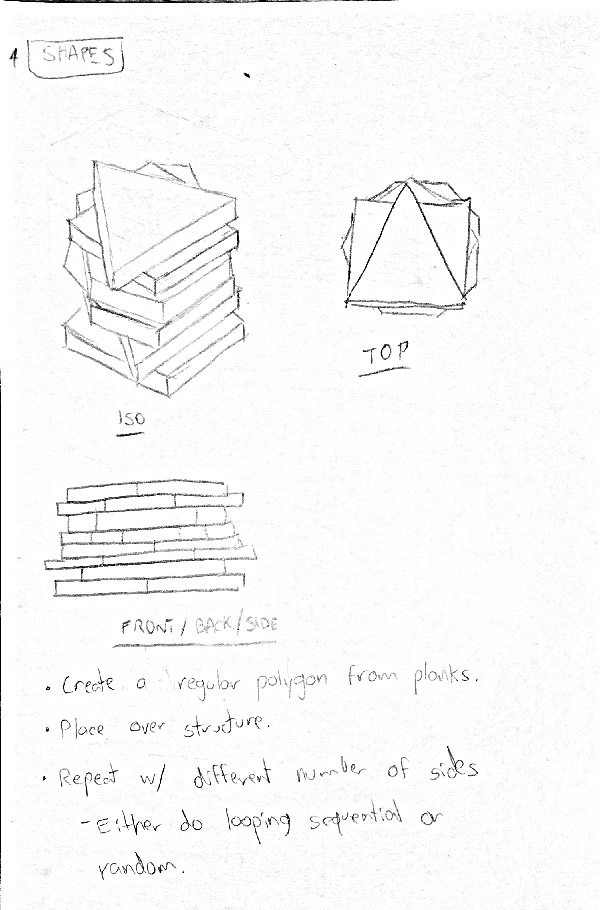 4 SHAPES
ISO
TOP
FRONT/BACK/SIDE
• Create a regular polygon from planks.
• Place over structure.
• Repeat w/ different number of sides
- Either do looping sequential or
random.